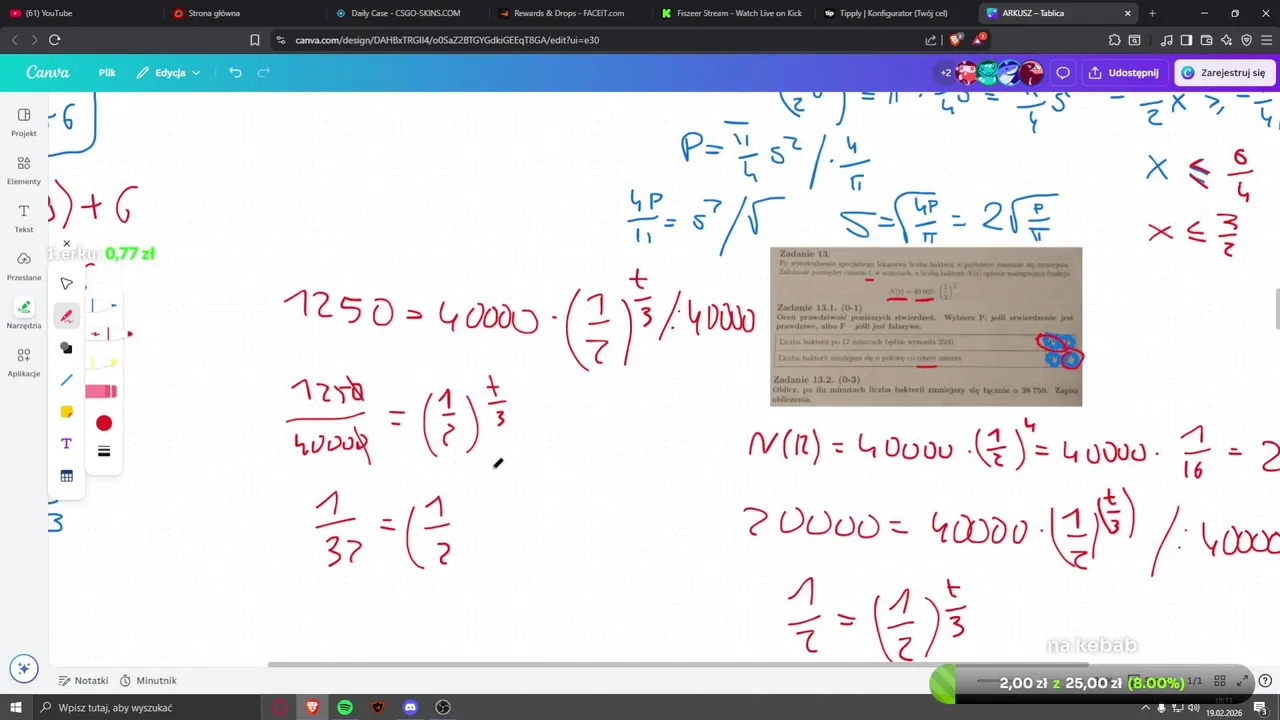 (61) YouTube
Strona główna
Daily Case - CSGO-SKINS.COM
Rewards & Drops - FACEIT.com
Fiszeer Stream - Watch Live on Kick
Tipply | Konfigurator (Twój cel)
ARKUSZ – Tablica
canva.com/design/DAHBxTRGlI4/o0SaZ2BTGYGdkiGEEqT8GA/edit?ui=e30
Canva
Plik
Edycja
+2
Udostępnij
Zarejestruj się
Projekt
Elementy
Tekst
Przesłane
Narzędzia
Aplikacje
0,77 zł
) + 6
P = π/4 s² / · 4/π
4P/π = s² / √
S = √4P/π = 2√P/π
x ≤ 6/4
x ≤ 3/2
Zadanie 13.
Po wprowadzeniu specjalnego lekarstwa liczba bakterii w próbówce znacznie się zmniejsza.
Zależność pomiędzy czasem t, w minutach, a liczbą bakterii N(t) opisuje następująca funkcja
N(t) = 40 000 · (1/2)
Zadanie 13.1. (0-1)
Oceń prawdziwość poniższych stwierdzeń. Wybierz P, jeśli stwierdzenie jest
prawdziwe, albo F – jeśli jest fałszywe.
Liczba bakterii po 12 minutach będzie wynosiła 2500.
Liczba bakterii zmniejsza się o połowę co cztery minuty
Zadanie 13.2. (0-3)
Oblicz, po ilu minutach liczba bakterii zmniejszy się łącznie o 38 750. Zapisz
obliczenia.
1250 = 40000 · (1/2)^t/3 / : 40000
1250/40000 = (1/2)^t/3
1/32 = (1/2
N(12) = 40000 · (1/2)^4 = 40000 · 1/16 = 2
20000 = 40000 · (1/2)^(t/3) / : 40000
1/2 = (1/2)^t/3
na kebab
2,00 zł z 25,00 zł (8.00%)
Notatki
Minutnik
1/1
Wpisz tutaj, aby wyszukać
19.02.2026